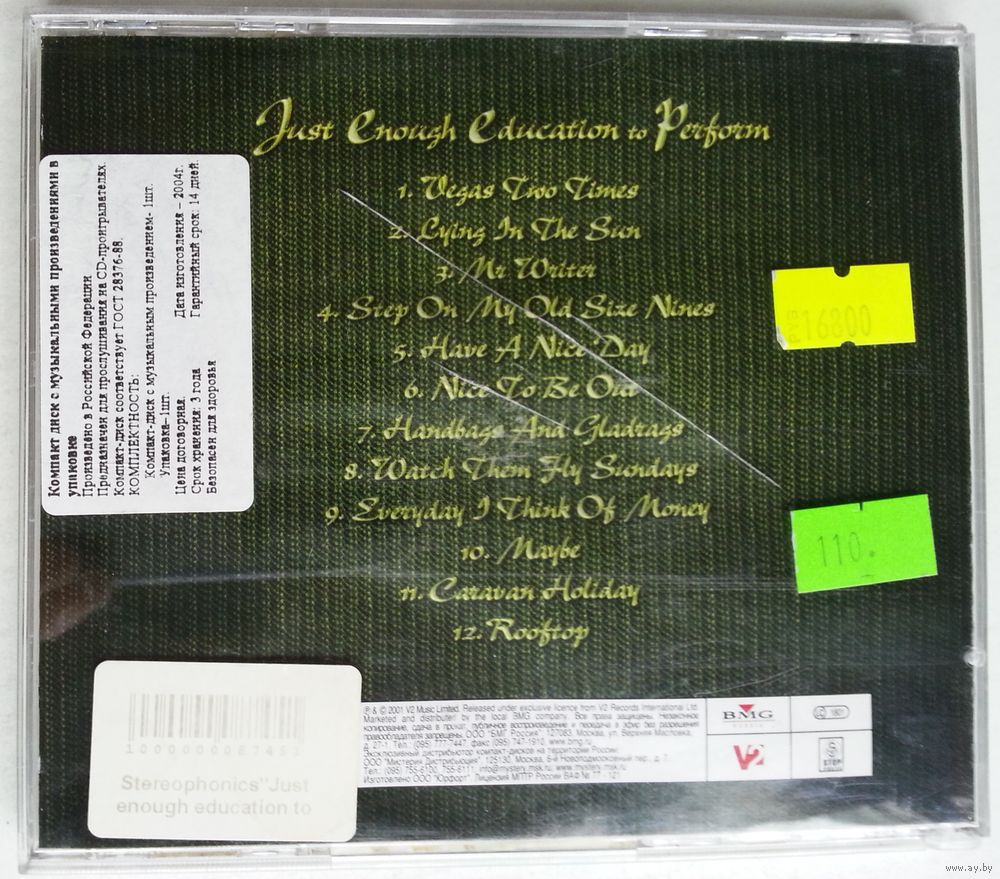 Just Enough Education to Perform
1. Vegas Two Times
2. Lying In The Sun
3. Mr Writer
4. Step On My Old Size Nines
5. Have A Nice Day
6. Nice To Be Out
7. Handbags And Gladrags
8. Watch Them Fly Sundays
9. Everyday I Think Of Money
10. Maybe
11. Caravan Holiday
12. Rooftop
Компакт диск с музыкальными произведениями в
упаковке
Произведено в Российской Федерации
Предназначен для прослушивания на CD-проигрывателях.
Компакт-диск соответствует ГОСТ 28376-88.
КОМПЛЕКТНОСТЬ:
Компакт-диск с музыкальным произведением- 1шт.
Упаковка–1шт.
Цена договорная. Дата изготовления – 2004г.
Срок хранения: 3 года Гарантийный срок: 14 дней.
Безопасен для здоровья
16800
110.
Stereophonics"Just
enough education to
℗ & © 2001 V2 Music Limited. Released under exclusive licence from V2 Records International Ltd.
Marketed and distributed by the local BMG company. Все права защищены. Незаконное
копирование, сдача в прокат, публичное воспроизведение и передача в эфир без разрешения
правообладателя запрещены. ООО "БМГ Россия", 127083, Москва, ул. Верхняя Масловка,
д. 27-1. Тел.: (095) 777-7447, факс (095) 747-1910, www.bmg.ru
Эксклюзивный дистрибьютор компакт-дисков на территории России:
ООО "Мистерия Дистрибьюция", 125130, Москва, 6-й Новоподмосковный пер., д. 7.
Тел.: (095) 755-6120, 755-6111; info@mystery.msk.ru, www.mystery.msk.ru
Изготовлено ООО "Юрфорт". Лицензия МПТР России ВАФ № 77 - 121
BMG
RUSSIA
V2
STEP
www.ay.by